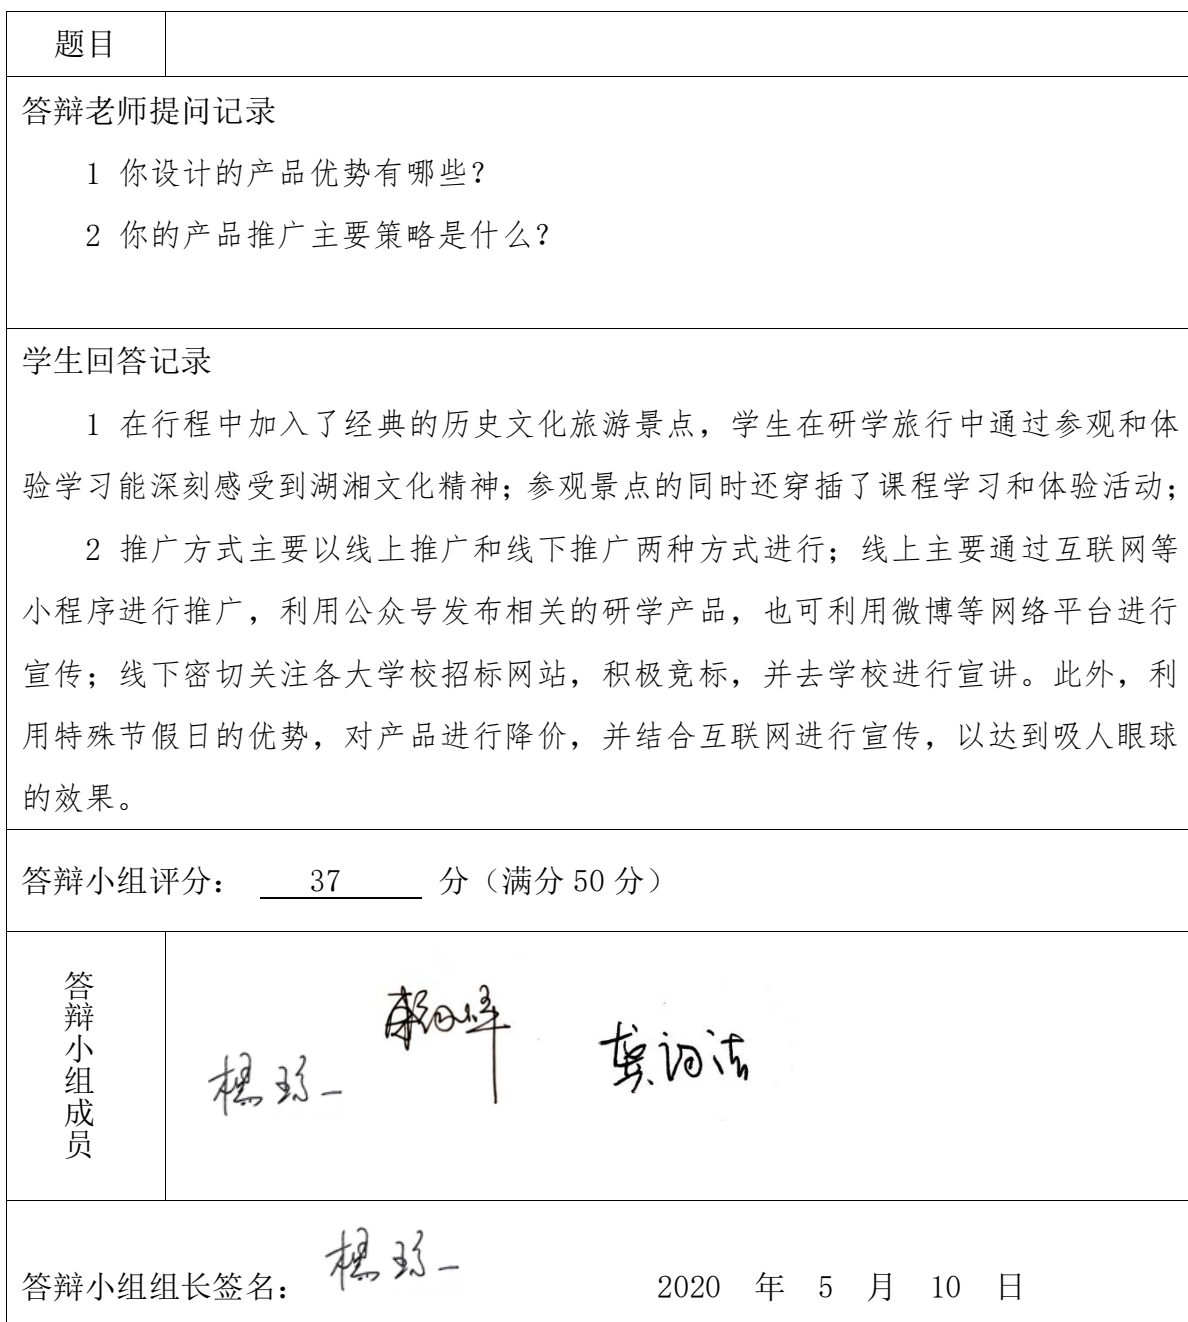 题目
答辩老师提问记录
1 你设计的产品优势有哪些？
2 你的产品推广主要策略是什么？
学生回答记录
1 在行程中加入了经典的历史文化旅游景点，学生在研学旅行中通过参观和体
验学习能深刻感受到湖湘文化精神；参观景点的同时还穿插了课程学习和体验活动；
2 推广方式主要以线上推广和线下推广两种方式进行；线上主要通过互联网等
小程序进行推广，利用公众号发布相关的研学产品，也可利用微博等网络平台进行
宣传；线下密切关注各大学校招标网站，积极竞标，并去学校进行宣讲。此外，利
用特殊节假日的优势，对产品进行降价，并结合互联网进行宣传，以达到吸人眼球
的效果。
答辩小组评分： 37 分（满分 50 分）
答辩小组成员
答辩小组组长签名： 2020 年 5 月 10 日